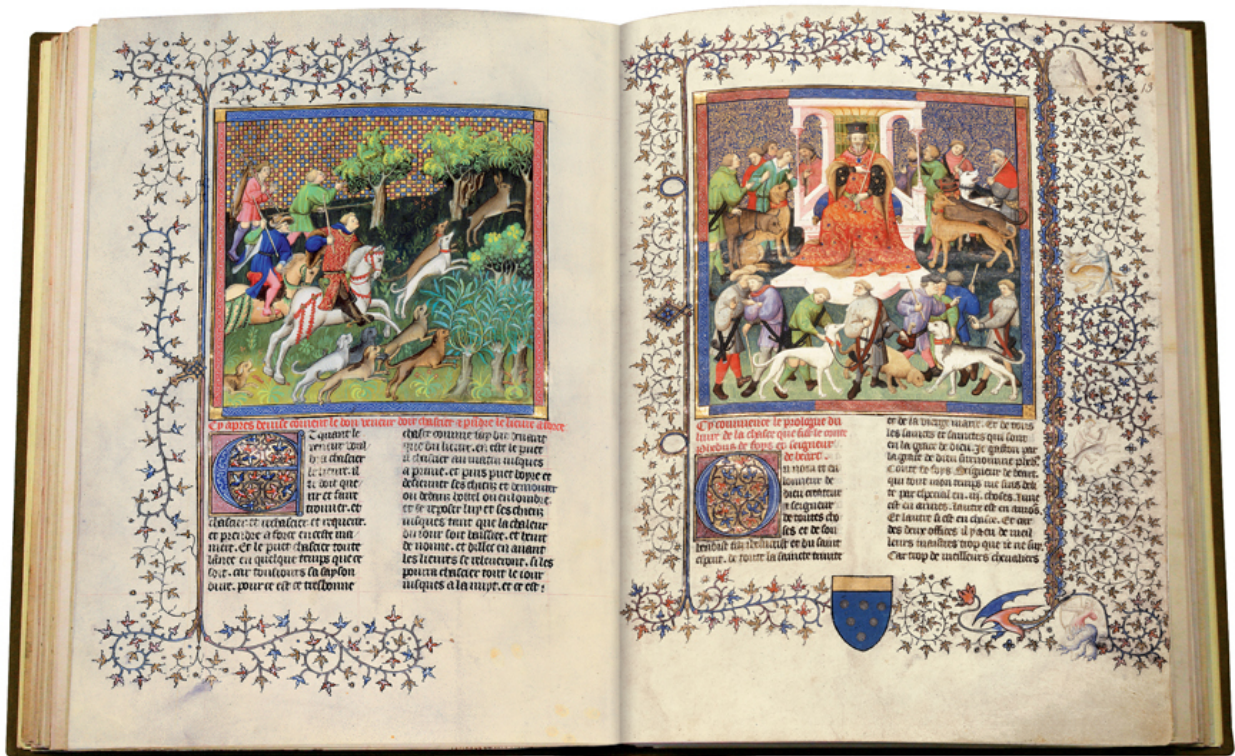 Cy apres devise coment le bon veneur doit chassier & prandre le lievre a force
Et quant le
veneur voul
dra chassier
le lievre. il
le doit que
rir et faire
chassier. et rechassier et requerir.
et prendre a force en ceste ma
niere. Et le puet chassier toute
lance en quelque temps que ce
soit. car tousiours sa sayson
dure. pour ce est ce tresbonne
chasse comme iay dit devant
que du lievre. en este le puet
il chassier au matin iusques
a prime. et puis puet boyre et
destendre ses chiens et demourer
ou dedans lostel ou en lombre.
et se reposer luy et ses chiens
iusques tant que la chaleur
du iour soit baissiee. et leure
de nonne. et dillec en avant
les lievres se releveront. si les
pourra chassier tout le iour
iusques a la nuyt. et ce est
13
Cy commence le prologue du
livre de la chasse que fist le conte
phebus de foys et seigneur
de bearn
Ou nom et en
honneur de
dieu createur
et seigneur
de toutes cho
ses et de son
benoist filz ihesucrist et du saint
esperit. de toute la saincte trinite
et de la vierge marie. Et de tous
les sains et sainctes qui sont
en la grace de dieu. Je gaston par
la grace de dieu surnomme phebus
Conte de foys. Seigneur de bearn.
qui tout mon temps me suis deli
te par especial en .iii. choses. lune
est en armes. lautre est en amors.
Et lautre si est en chasse. Et car
des deux offices il y a eu de meil
leurs maistres trop que ie ne suy.
Car trop de meilleurs chevaliers